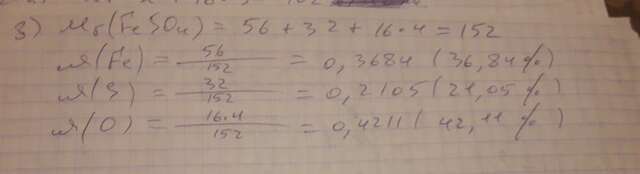 3) Mг(FeSO4) = 56 + 32 + 16·4 = 152
w(Fe) = 56/152 = 0,3684 (36,84%)
w(S) = 32/152 = 0,2105 (21,05%)
w(O) = 16·4/152 = 0,4211 (42,11%)